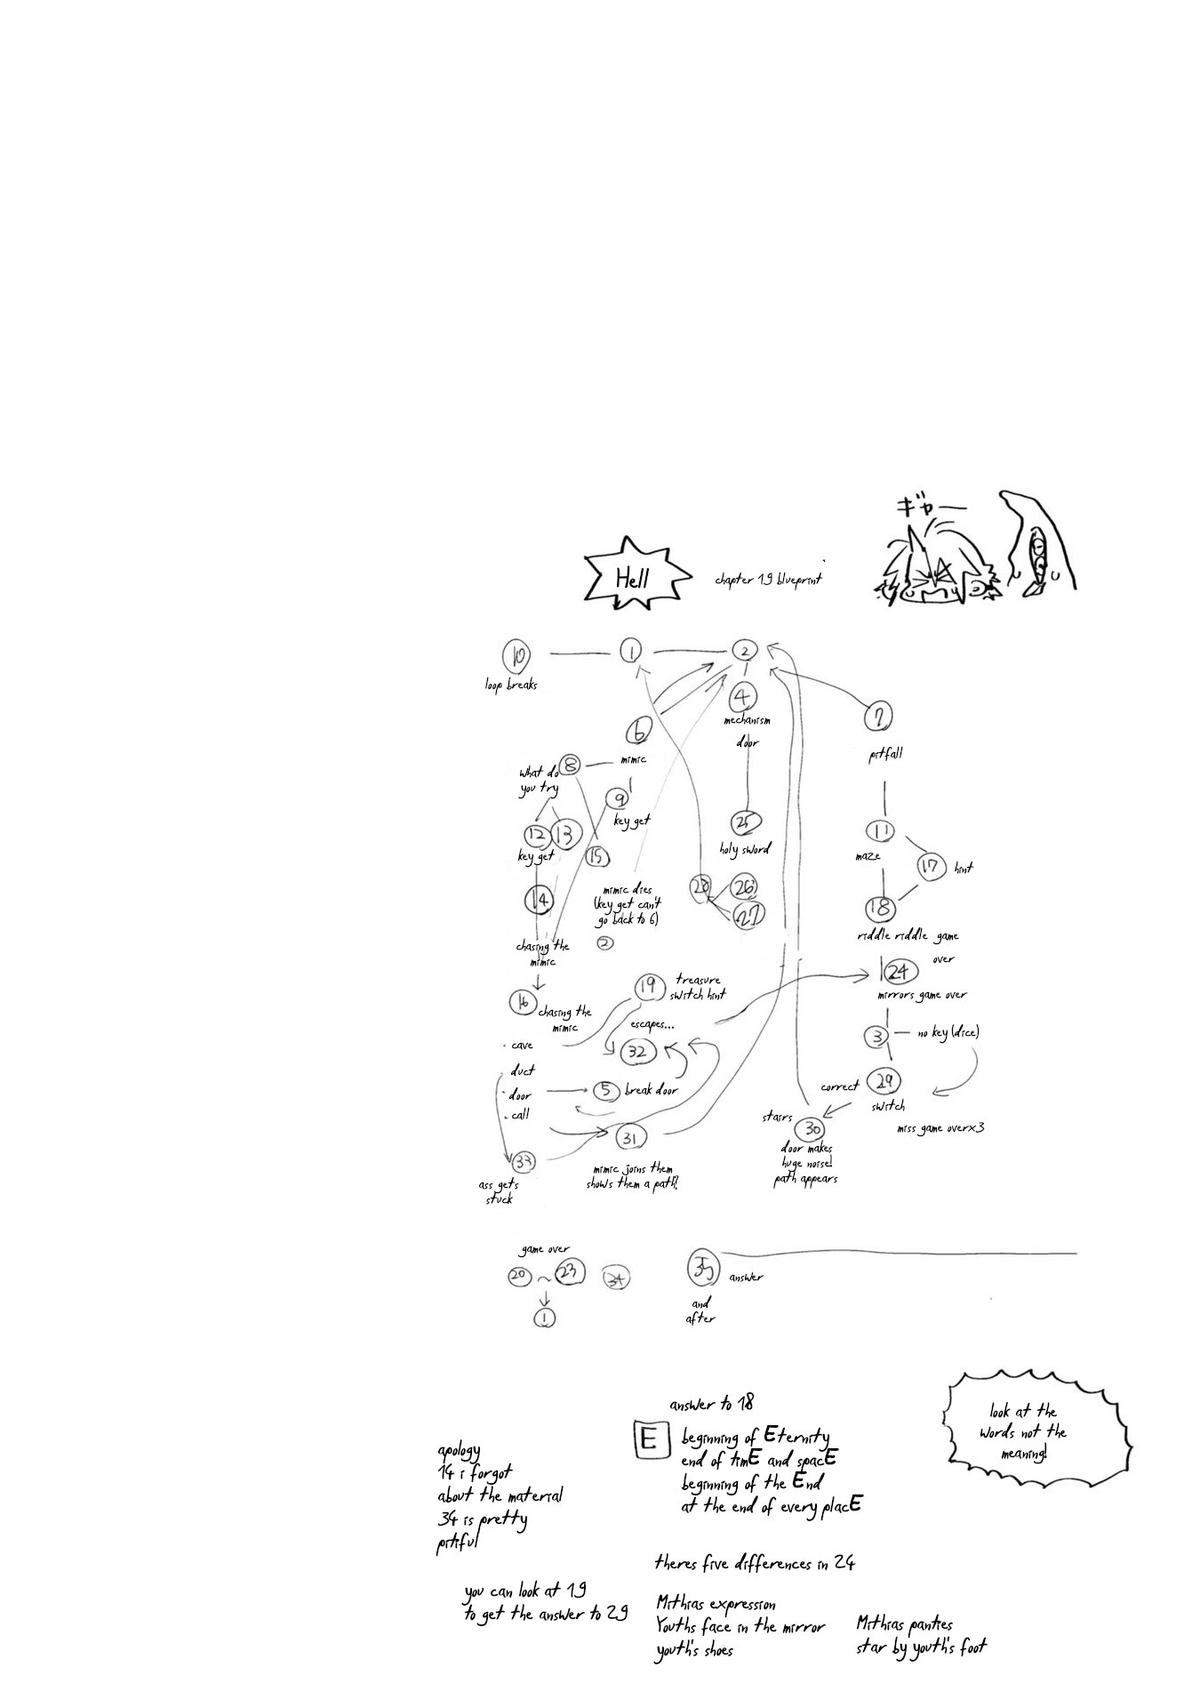 ギャー
Hell
chapter 19 blueprint
10
1
2
loop breaks
4
mechanism
door
7
pitfall
6
mimic
8
what do
you try
9
key get
12
13
key get
15
25
holy sword
11
maze
17
hint
14
mimic dies
(key get can't
go back to 6)
2
28
26
27
18
riddle riddle game
over
chasing the
mimic
24
mirrors game over
16
chasing the
mimic
19
treasure
switch hint
escapes...
32
3
no key (dice)
· cave
duct
· door
· call
5
break door
correct
29
switch
miss game over×3
stairs
30
door makes
huge noise!
path appears
31
mimic joins them
shows them a path!
33
ass gets
stuck
game over
20
~
23
34
1
35
answer
and
after
answer to 18
E
beginning of Eternity
end of timE and spacE
beginning of the End
at the end of every placE
look at the
words not the
meaning!
apology
14 i forgot
about the material
34 is pretty
pitiful
theres five differences in 24
you can look at 19
to get the answer to 29
Mithras expression
Youths face in the mirror
youth's shoes
Mithras panties
star by youth's foot